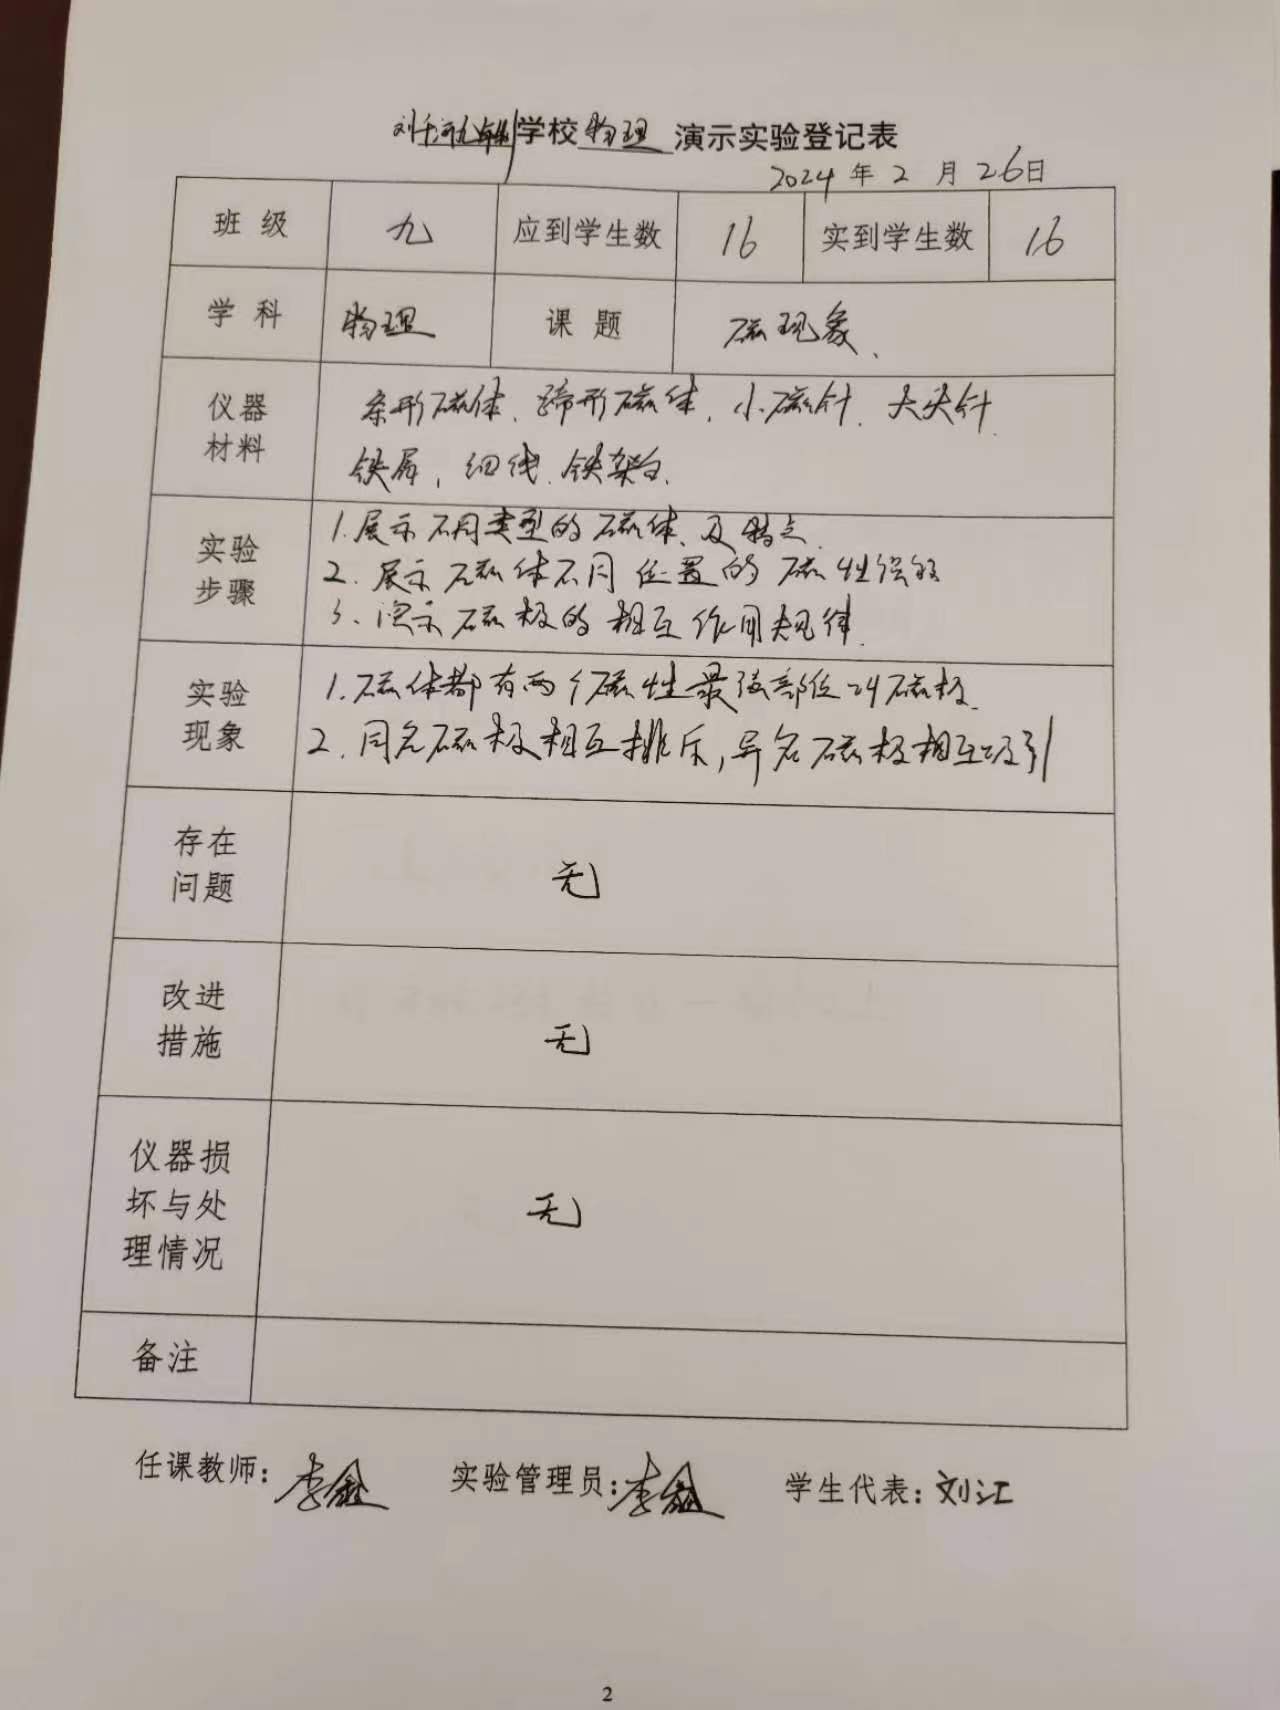 刘千河九年制学校物理演示实验登记表
2024年2月26日
班级 九 应到学生数 16 实到学生数 16
学科 物理 课题 磁现象、
仪器材料
条形磁体、蹄形磁体、小磁针、大头针、
铁屑，细线、铁架台、
实验步骤
1.展示不同类型的磁体、及特点、
2.展示磁体不同位置的磁性强弱
3、演示磁极的相互作用规律、
实验现象
1.磁体都有两个磁性最强部位叫磁极、
2.同名磁极相互排斥，异名磁极相互吸引
存在问题
无
改进措施
无
仪器损坏与处理情况
无
备注
任课教师：李鑫 实验管理员：李鑫 学生代表：刘江
2